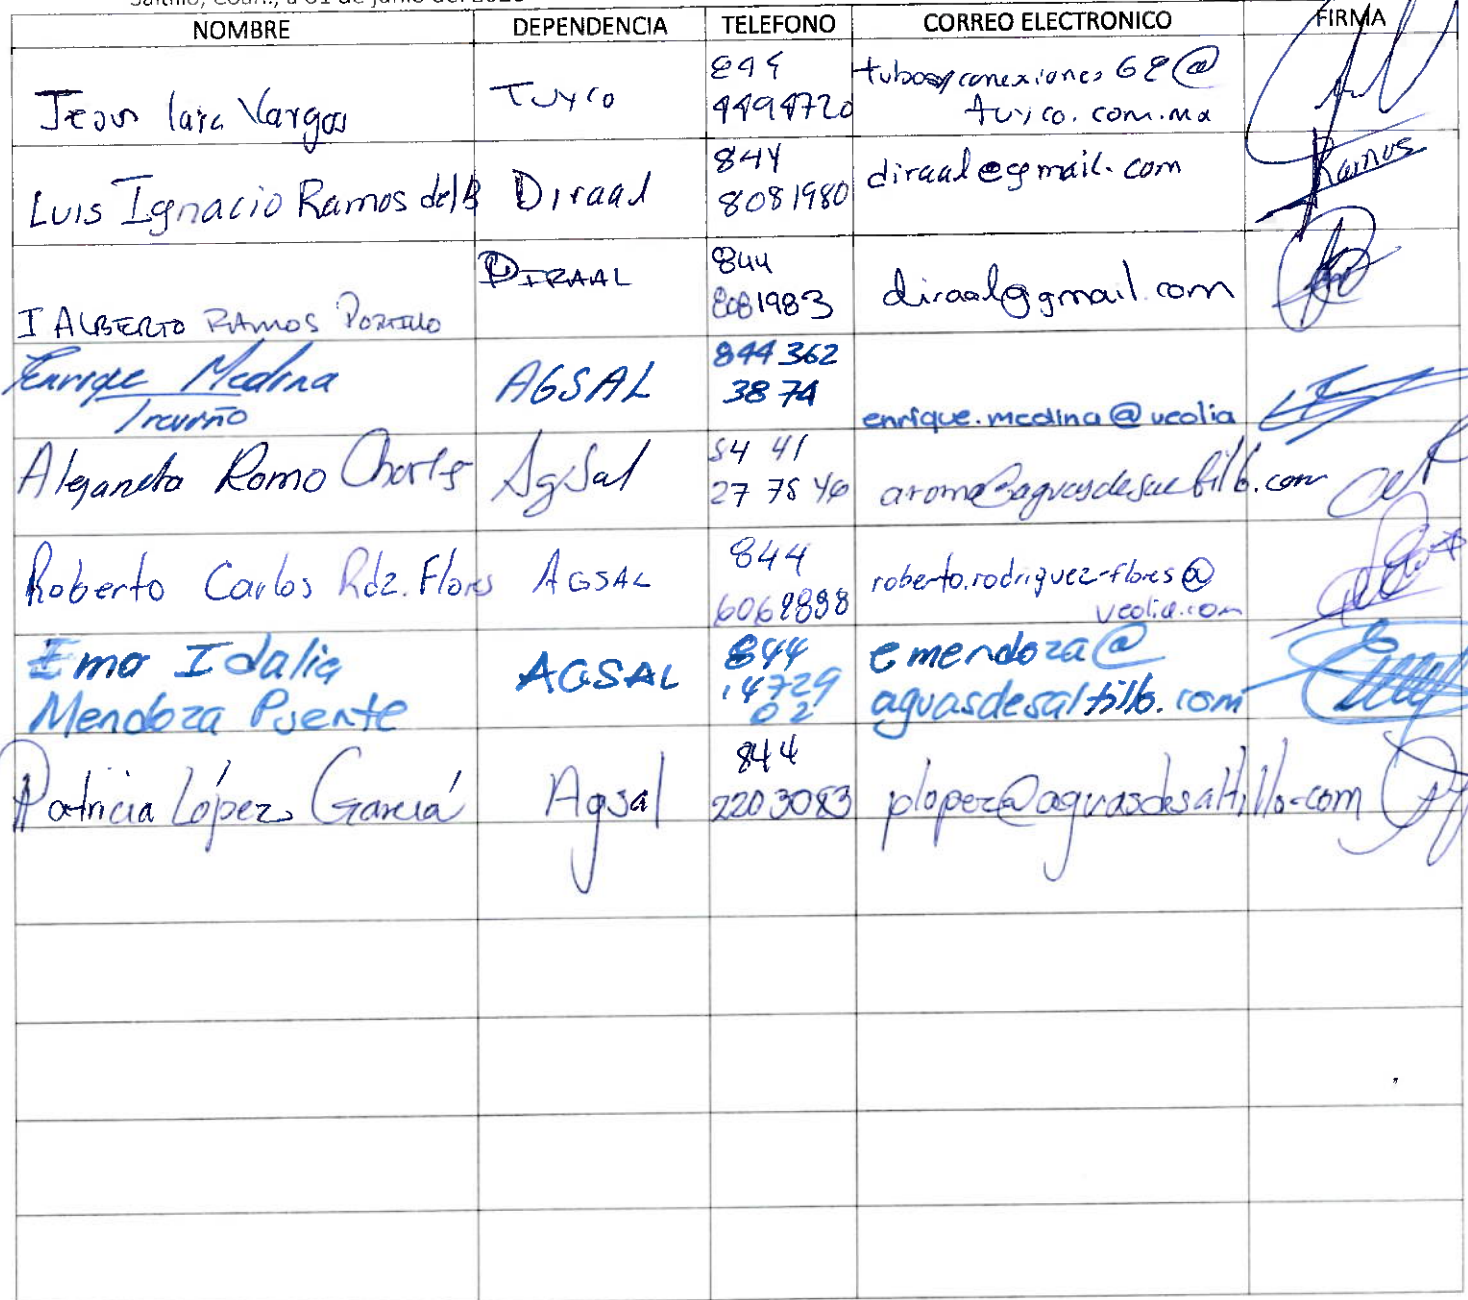 Saltillo, Coah., a 01 de junio del 2020
NOMBRE DEPENDENCIA TELEFONO CORREO ELECTRONICO FIRMA
Jesus lara Vargas Tuyco 844 4494720 tubosyconexiones 68@
tuyco.com.mx
Luis Ignacio Ramos del B Diraal 844 8081980 diraal@gmail.com Ramos
I ALBERTO RAMOS PORTILLO DIRAAL 844 8081983 diraal@gmail.com
Enrique Medina AGSAL 844 362
Treviño 38 74 enrique.medina@veolia
Alejandra Romo Charles AgSal 54 41
27 75 46 aromo@aguasdesaltillo.com
Roberto Carlos Rdz. Flores AGSAL 844 roberto.rodriguez-flores@
6069898 veolia.com
Ema Idalia AGSAL 844 emendoza@
Mendoza Puente 14729 02 aguasdesaltillo.com
Patricia López García Agsal 844
2203083 plopez@aguasdesaltillo.com